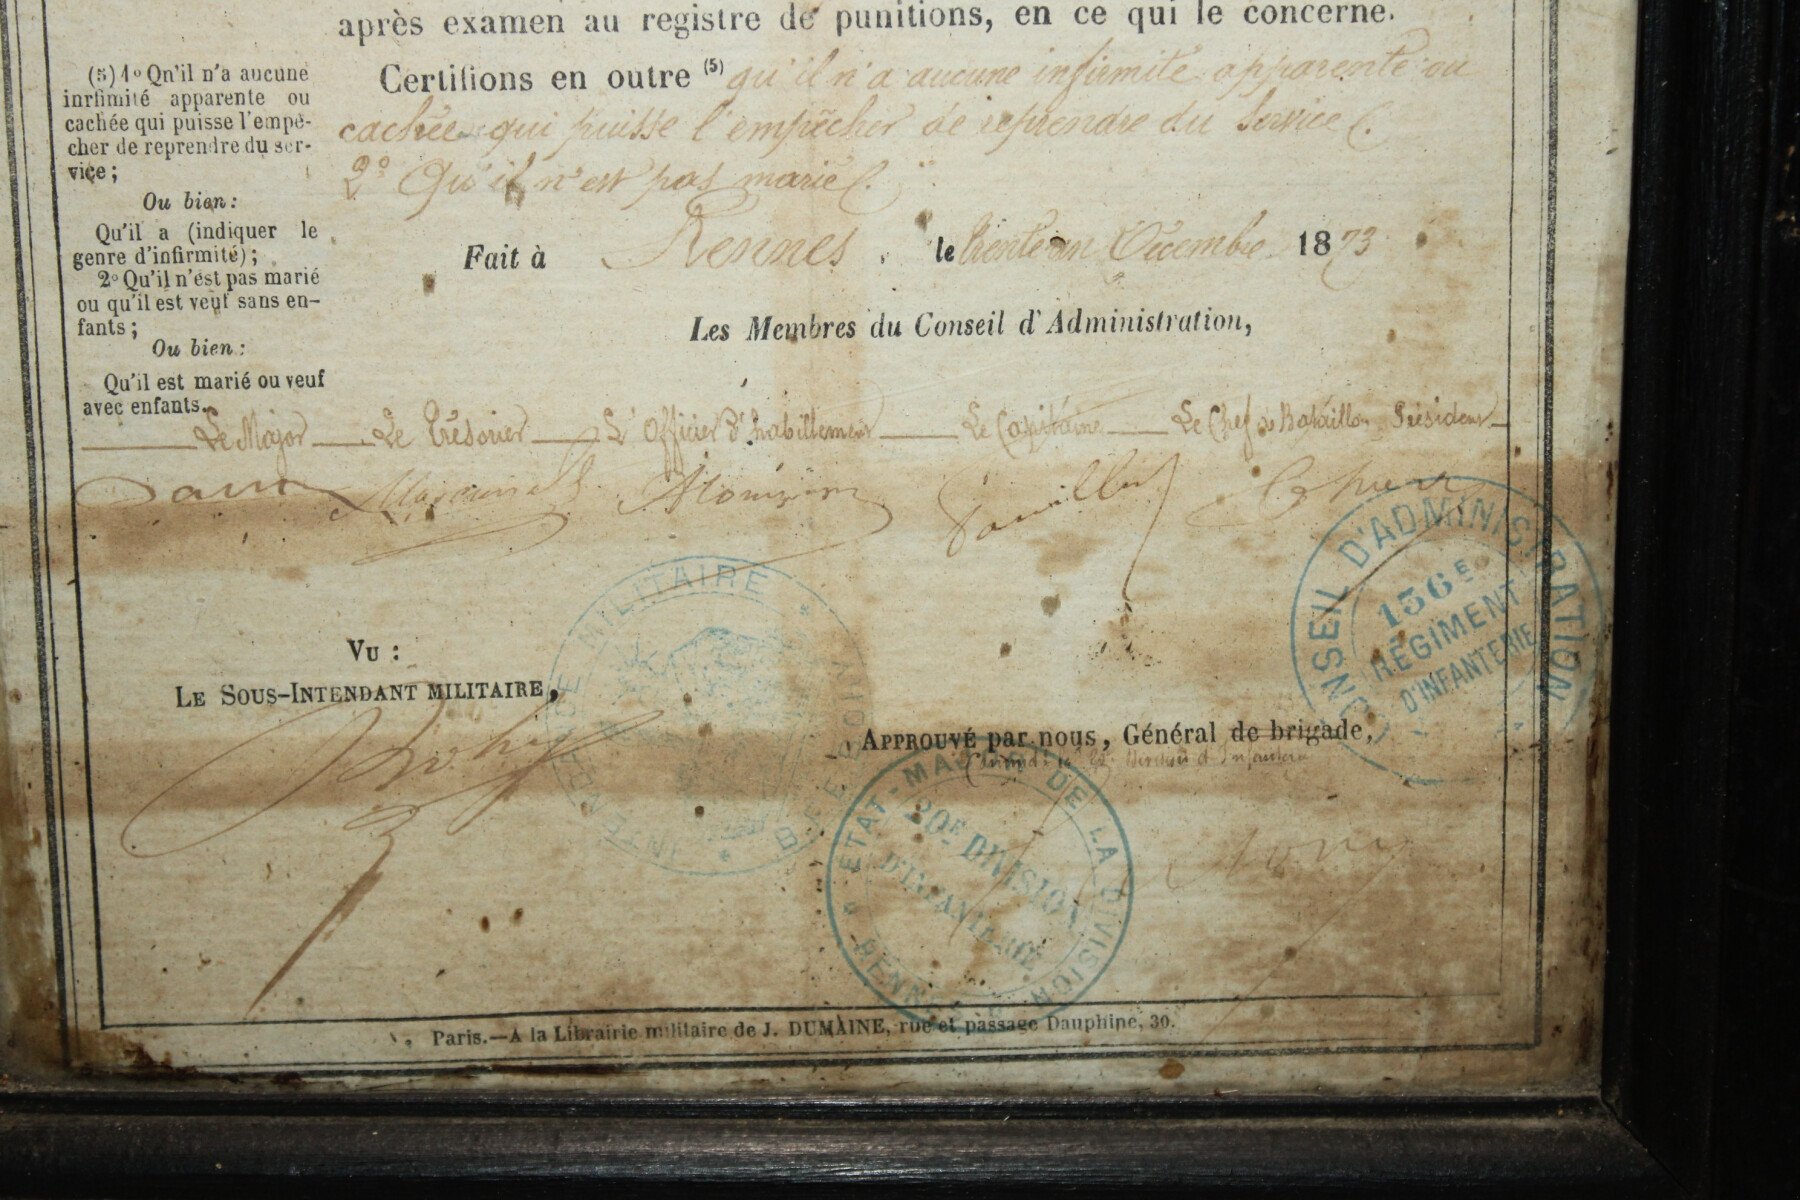 après examen au registre de punitions, en ce qui le concerne.
Certifions en outre (5) qu'il n'a aucune infirmité apparente ou
cachée qui puisse l'empêcher de reprendre du service.
2º Qu'il n'est pas marié.
Fait à Rennes, le trente un Décembre 1873
Les Membres du Conseil d'Administration,
(5) 1º Qn'il n'a aucune
inrfimité apparente ou
cachée qui puisse l'empê-
cher de reprendre du ser-
vice;
Ou bien:
Qu'il a (indiquer le
genre d'infirmité);
2º Qu'il n'ést pas marié
ou qu'il est veuf sans en-
fants;
Ou bien:
Qu'il est marié ou veuf
avec enfants.
Le Major Le Trésorier L'Officier d'habillement Le Capitaine Le Chef de Bataillon Président
CONSEIL D'ADMINISTRATION
136E
RÉGIMENT
D'INFANTERIE
INTENDANCE MILITAIRE
VU:
LE SOUS-INTENDANT MILITAIRE,
APPROUVÉ par nous, Général de brigade,
ETAT-MAJOR DE LA DIVISION
20E DIVISION
D'INFANTERIE
RENNES
Paris.—A la Librairie militaire de J. DUMAINE, rue et passage Dauphine, 30.